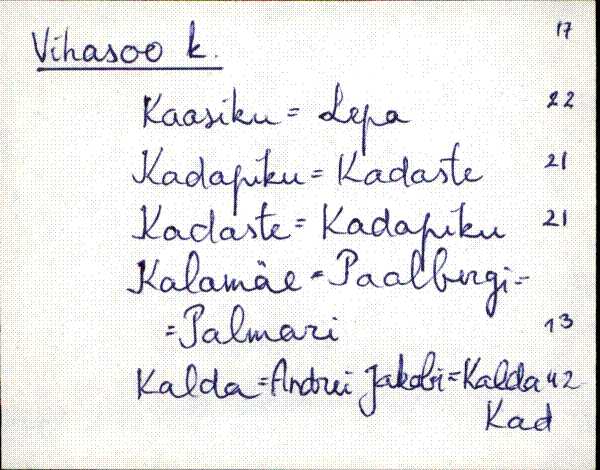 17
Vihasoo k.
Kaasiku = Lepa 22
Kadapiku = Kadaste 21
Kadaste = Kadapiku 21
Kalamäe = Paalbergi =
= Palmari 13
Kalda = Andrei Jakobi = Kalda 42
Kad